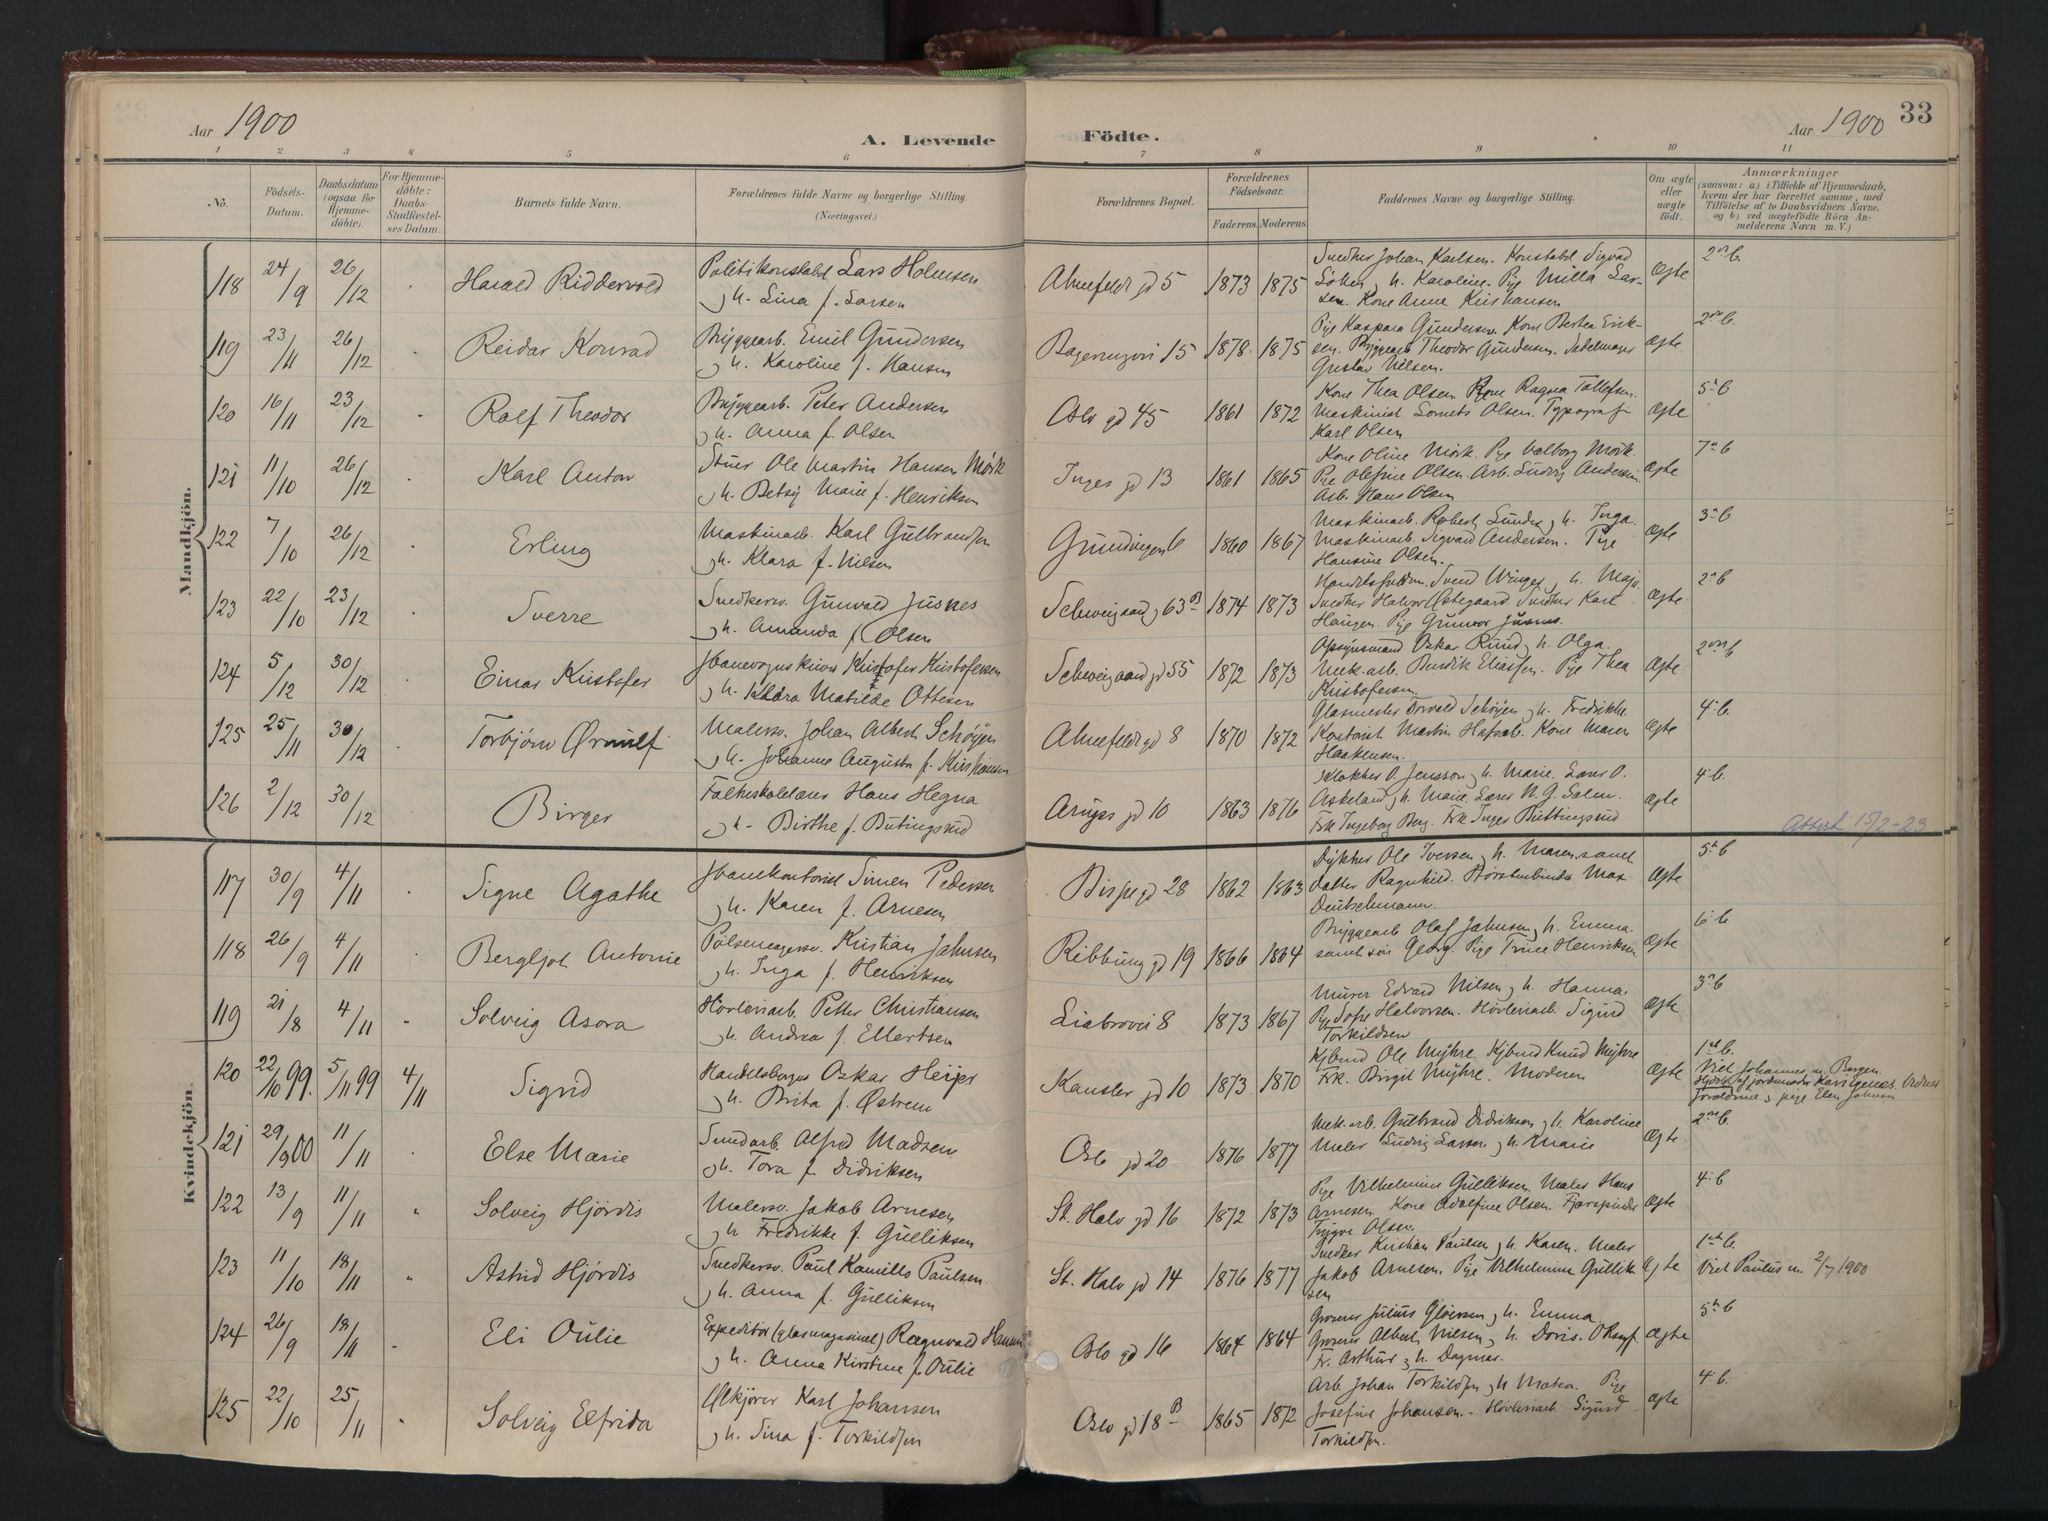 Aar 1900
A. Levende
Födte.
Aar 1900
33
1 2 3 4 5 6 7 8 9 10 11
No.
Födsels-
Datum.
Daabsdatum
(ogsaa for
Hjemme-
döbte).
For Hjemme-
döbte:
Daabs-
Stadfæstel-
ses Datum.
Barnets fulde Navn.
Forældrenes fulde Navne og borgerlige Stilling.
(Næringsvei.)
Forældrenes Bopæl.
Forældrenes
Födselsaar.
Faderens.
Moderens.
Faddernes Navne og borgerlige Stilling.
Om ægte
eller
uægte
født.
Anmærkninger
(saasom: a) i Tilfælde af Hjemmedaab,
hvem der har forrettet samme, med
Tilföielse af to Daabsvidners Navne.
og b) ved uægtefödte Börn An-
melderens Navn m. V.)
Mandkjön.
118 24/9 26/12 Harald Riddervold
Politikonstabel Lars Holmsen
og h. Lina f. Larsen
5 1873 1875
Snedker Johan Karlsen. Konstabel Sigvad
h. Karoline. Pige Milla Lar-
sen. Kone Anne Kristiansen
Ægte 2det b.
119 23/11 26/12 Reidar Konrad
Bryggearb. Emil Gundersen
og h. Karoline f. Hansen
15 1878 1875
Pige Kaspara Gundersen. Kone Berthea Erik-
sen. Bryggearb Theodor Gundersen. Sadelmager
Gustav Nilsen.
Ægte
120 16/11 23/12 Rolf Theodor
Bryggearb. Peter Andersen
og h. Anna f. Olsen
Oslo gd 45 1861 1872
Kone Thea Olsen. Kone Ragna Tollefsen.
Maskinist Olsen. Typograf
Karl Olsen
Ægte 5te b
121 11/10 26/12 Karl Anton
Stuer Ole Martin Hansen Mørk
og h. Betsy Marie f. Henriksen
Inges gd 13 1861 1865
Kone Oline Mørk. Pige Valborg Mørk.
Pige Olefine Olsen. Arb. Ludvig Andersen.
Arb. Hans Olsen
Ægte 7de b
122 7/10 26/12 Erling
Maskinarb. Karl Gulbrandsen
og h. Klara f. Nilsen
6 1860 1867
Maskinarb. Robert Lunde og h. Inga.
Maskinarb. Sigvard Andersen. Pige
Hansine Olsen.
Ægte 3de b
123 22/10 23/12 Sverre
Snedkersv. Gunvald Jusnes
og h. Amanda f. Olsen
Schweigaard g 63B 1874 1873
Svend Winge og h. Maja
Snedker Halvor Østegaard Snedker Karl
Haugen. Pige Gunvor Jusnes.
Ægte 2det b
124 5/12 30/12 Einar Kristofer
Kristofer Kristofersen
og h. Klara Matilde Ottesen
Schweigaard gd 55 1872 1873
Opsynsmand Oskar Rund og h. Olga.
Mek. arb. Bendik Eliassen. Pige Thea
Kristofersen
Ægte 2det b
125 25/11 30/12 Torbjørn Ørnulf
Malersv. Johan Albert Schøyen
og h. Johanne Augusta f. Kristiansen
8 1870 1872
Glasmester Torvald Schøyen og h. Fredrikke.
Kontorist Martin Hafsal. Kone Maren
Haakensen.
Ægte 4de b.
126 2/12 30/12 Birger
Folkeskolelærer Hans Hegna
og h. Birthe f. Butingsrud
10 1863 1876
Klokker O. Jensson og h. Marie. Lærer O.
Askeland og h. Marie. Lærer N. G. Salen.
Frk Ingeborg Berg. Frk Inger Buttingsrud
Ægte 4de b.
Attest 15/2-23
Kvindekjön.
117 30/9 4/11 Signe Agathe
Simen Pedersen
og h. Karen f. Arnesen
Bispe gd 28 1862 1863
Dykker Ole Iversen og h. Maren samt
datter Ragnhild. Børstenbinder Max
Deutschmann.
Ægte 5te b
118 26/9 4/11 Bergljot Antonie
Pølsemagersv. Kristian Johnsen
og h. Inga f. Henriksen
Ribbung gd 19 1866 1864
Bryggearb Olaf Johnsen og h. Emma.
samt søn Georg. Pige Trine Henriksen
Ægte 6te b
119 21/8 4/11 Solveig Asora
Høvleriarb. Petter Christiansen
og h. Andrea f. Ellertsen
Liabrovei 8 1873 1867
Murer Edvard Nilsen og h. Hanna.
Pige Sofie Halvorsen. Høvleriarb. Sigurd
Torkildsen
Ægte 3de b
120 22/10 99. 5/11 99 4/11 Sigrid
Handelsborger Oskar Heijer
og h. Brita f. Østrem
Kansler gd 10 1873 1870
Kjbmd Ole Myhre. Kjbmd Knud Myhre
Frk. Birgit Myhre. Moderen
Ægte 1ste b.
Viet Johannes m. Bergen.
Hjdøbt af jordemoder
Forældrene og pige Elen Johnsen
121 29/9 00 11/11 Else Marie
Smedarb. Alfred Madsen
og h. Tora f. Didriksen
Oslo gd 20 1876 1877
Mek. arb. Gulbrand Didriksen og h. Karoline
Maler Ludvig Larsen og h. Marie
Ægte 2det b.
122 13/9 11/11 Solveig Hjørdis
Malersv. Jakob Arnesen
og h. Fredrikke f. Gulliksen
St. Halv gd 16 1872 1873
Pige Vilhelmine Gulliksen. Maler Hans
Arnesen. Kone Adolfine Olsen.
Trygve Olsen.
Ægte 4de b
123 11/10 18/11 Astrid Hjørdis
Snedkersv. Paul Kamillo Paulsen.
og h. Anna f. Gulliksen
St. Halv gd 14 1876 1877
Snedker Kristian Paulsen og h. Karen. Maler
Jakob Arnesen. Pige Vilhelmine Gullik
sen
Ægte 1ste b.
Viet Paulus m. 2/7 1900
124 26/9 18/11 Eli Oulie
Expeditør (glasmagasinet) Ragnvald Hansen
og h. Anna Kirstine f. Oulie
Oslo gd 16 1864 1864
Grosserer Julius Gløersen og h. Emma
Grosserer Albert Nilsen og h. Doris.
Fr. Arthur og h. Dagmar.
Ægte 5te b
125 22/10 25/11 Solveig Elfrida
Ølkjører Karl Johansen
og h. Sina f. Torkildsen
Oslo gd 18B 1865 1872
Arb. Johan Torkildsen og h Matea. Pige
Josefine Johansen. Høvleriarb. Sigurd
Torkildsen.
Ægte 4de b.